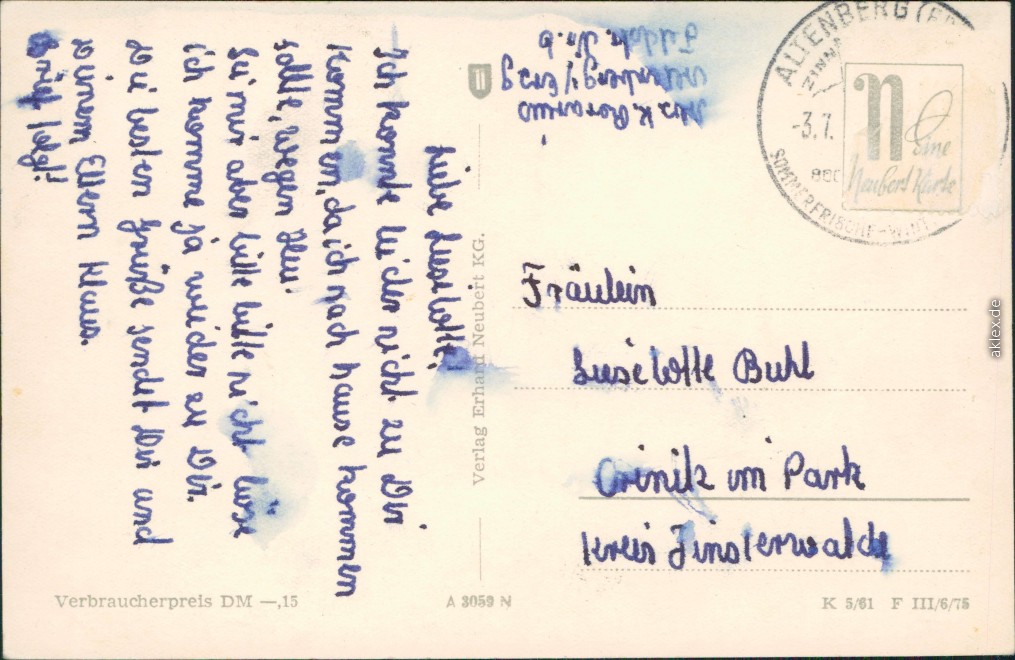 Liebe Lieselotte!
Ich konnte leider nicht zu Dir
kommen, da ich nach hause kommen
sollte, wegen Heu!
Sei mir aber bitte bitte nicht böse
ich komme ja wieder zu Dir.
Die besten Grüße sendet Dir und
Deinen Eltern Klaus.
Brief folgt!
Verlag Erhard Neubert KG.
ALTENBERG (ER
ZINN
-3.7.
SOMMERFRISCHE-WIN
N
Eine
Neubert Karte
Fräulein
Lieselotte Buhl
Crinitz im Park
Kreis Finsterwalde
Verbraucherpreis DM —,15
A 3059 N
K 5/61 F III/6/75
aklex.de